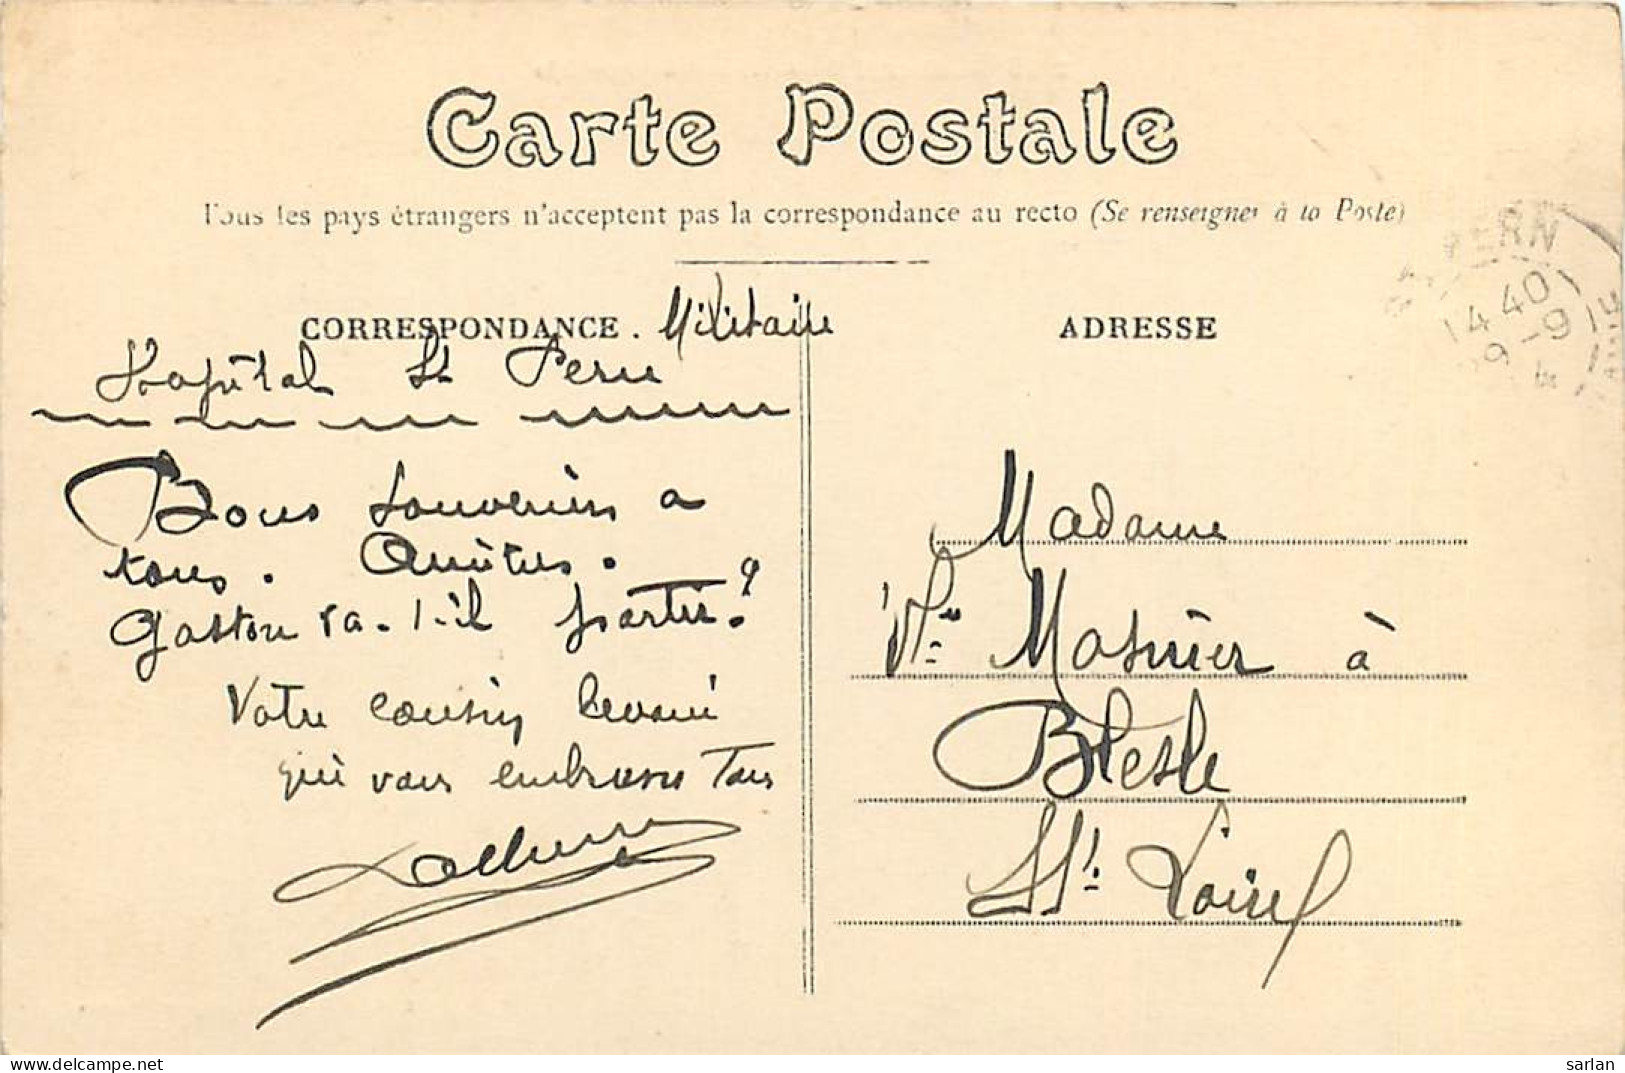 Carte Postale
Tous les pays étrangers n'acceptent pas la correspondance au recto (Se renseigner à la Poste)
CORRESPONDANCE. Militaire
Hopital St Pern
Bons souvenirs a
tous. Amitiés.
Gaston va-t-il partir?
Votre cousin
qui vous embrasse Tous
ADRESSE
Madame
Vve Masnier à
Blesle
Hte Loire
PERN
14 40
9-9
sarlan